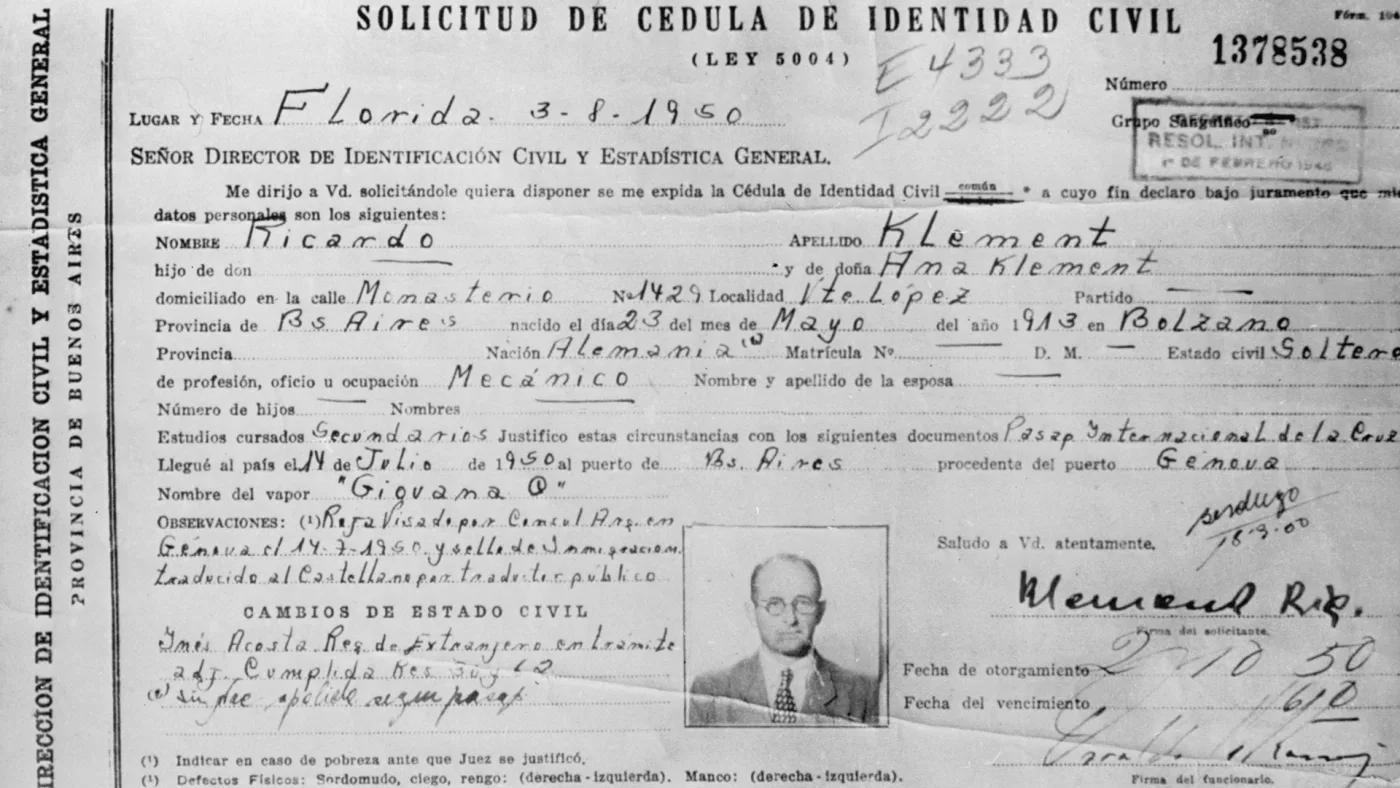 DIRECCION DE IDENTIFICACION CIVIL Y ESTADISTICA GENERAL
PROVINCIA DE BUENOS AIRES
SOLICITUD DE CEDULA DE IDENTIDAD CIVIL
(LEY 5004)
Fórm.
E 4333
1378538
I 2222
Número
LUGAR Y FECHA Florida. 3-8-1950
Grupo Sanguíneo
RESOL. INT.
1º DE FEBRERO 1946
SEÑOR DIRECTOR DE IDENTIFICACIÓN CIVIL Y ESTADÍSTICA GENERAL.
Me dirijo a Vd. solicitándole quiera disponer se me expida la Cédula de Identidad Civil común * a cuyo fin declaro bajo juramento que mis
datos personales son los siguientes:
NOMBRE Ricardo APELLIDO Klement
hijo de don y de doña Ana Klement
domiciliado en la calle Monasterio Nº 1429 Localidad Vte López Partido
Provincia de Bs Aires nacido el día 23 del mes de Mayo del año 1913 en Bolzano
Provincia Nación Alemania Matrícula Nº D. M. Estado civil Soltero
de profesión, oficio u ocupación Mecánico Nombre y apellido de la esposa
Número de hijos Nombres
Estudios cursados Secundarios Justifico estas circunstancias con los siguientes documentos Pasap. Internacional de la Cruz
Llegué al país el 14 de Julio de 1950 al puerto de Bs. Aires procedente del puerto Génova
Nombre del vapor "Giovana C"
OBSERVACIONES: (1) Roja Visado por Consul Arg. en
Génova el 14-7-1950 y sello de Inmigracion.
traducido al Castellano por traductor público
Saludo a Vd. atentamente.
CAMBIOS DE ESTADO CIVIL
Klement Ric.
Firma del solicitante.
Inés Acosta Reg. de Extranjero en trámite
adj. Cumplida Res
segun pasap
Fecha de otorgamiento 2 10 50
Fecha del vencimiento 60
(¹) Indicar en caso de pobreza ante que Juez se justificó.
(¹) Defectos Físicos: Sordomudo, ciego, rengo: (derecha-izquierda). Manco: (derecha-izquierda).
Firma del funcionario.